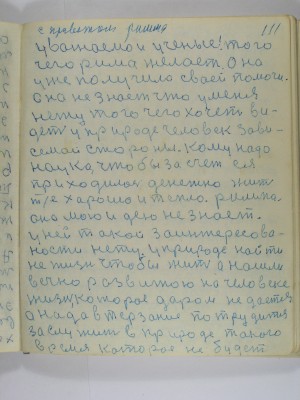 с приветом римма 111
уважаемой ученые! того
чего рима желает. Она
уже получило своей помочи.
она не знает что у меня
нету того чего хочеть ви-
деть у природе человек зави-
семай стороня. кому надо
наука, чтобы за счет ея
приходилоя денежно жит
т/е харошо и тепло. римма.
она мою идею не знает.
у ней такой заинтересова-
ности нету у природе найти
не жизн чтобы жить, а нашли
вечно развитою на человеке
жизн, которое даром не дается
а нада в терзание потрудится
заслужить в природе такого
время которое не будет